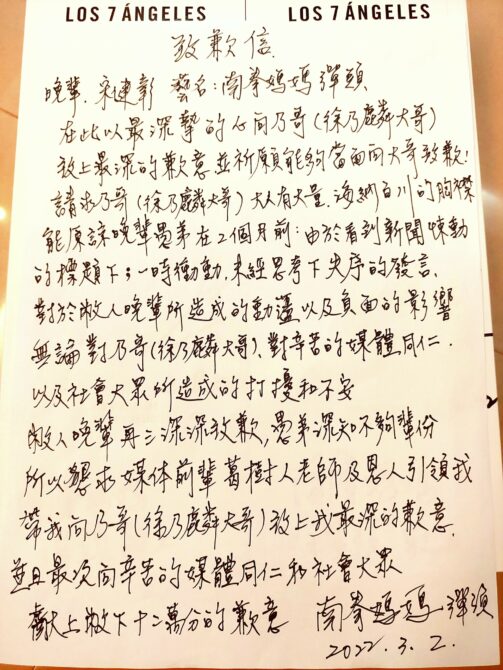 LOS 7 ÁNGELES LOS 7 ÁNGELES
致歉信
晚輩、宋健彰 藝名:南拳媽媽彈頭
在此以最深摯的心向乃哥(徐乃麟大哥)
致上最深的歉意並祈願能夠當面向大哥致歉!
請求乃哥(徐乃麟大哥)大人有大量、海納百川的胸襟
能原諒晚輩愚弟在2個月前:由於看到新聞悚動
的標題下;一時衝動、未經思考下失序的發言、
對於敝人晚輩所造成的動盪以及負面的影響
無論對乃哥(徐乃麟大哥)、對辛苦的媒體同仁、
以及社會大眾所造成的打擾和不安
敝人晚輩再三深深致歉,愚弟深知不夠輩份
所以懇求媒体前輩葛樹人老師及恩人引領我
帶我向乃哥(徐乃麟大哥)致上我最深的歉意、
並且最次向辛苦的媒體同仁和社會大眾
獻上敝下十二萬分的歉意 南拳媽媽 彈頭
2022.3.2.